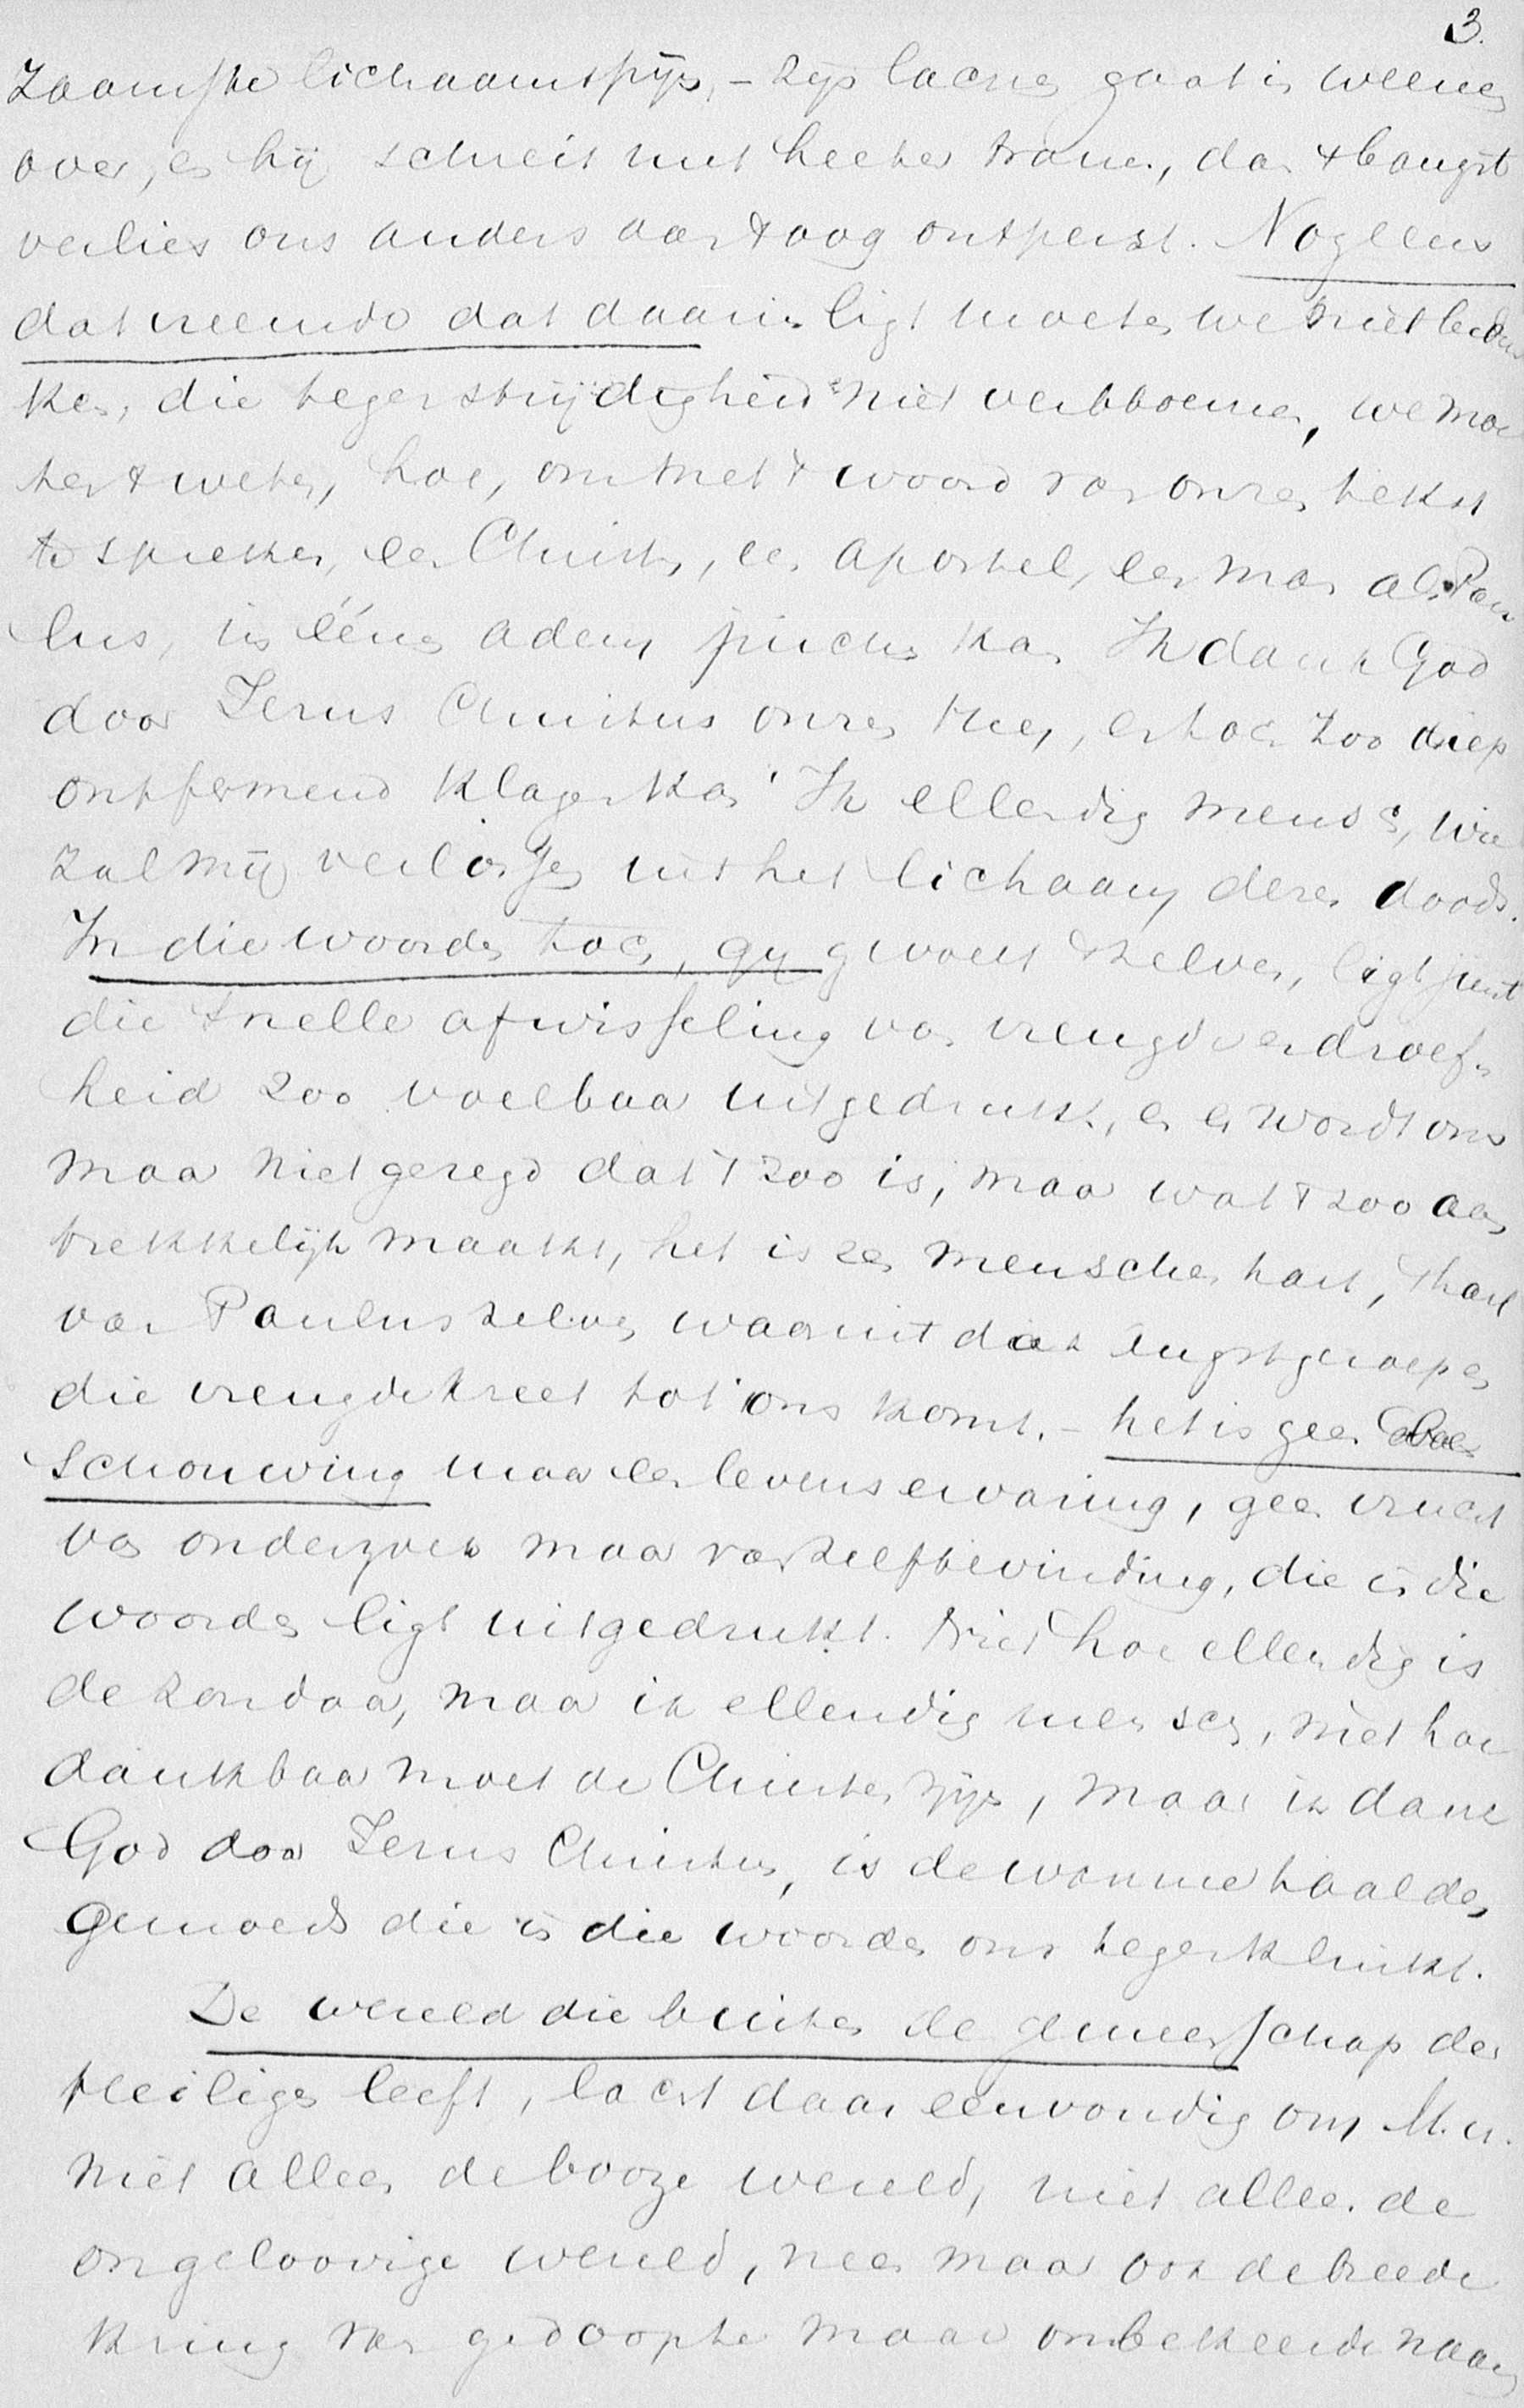 3.
zaamste lichaamspijn, - zijn lachen gaat in weenen
over, en hij schreit met heeter tranen, dan 't bangst
verlies ons anders aan 't oog ontperst. Nog eens
dat vreemde dat daarin ligt moeten we niet bedek
ken, die tegenstrijdigheid niet verbloemen, we moe
ten 't weten, hoe, om met 't woord van onzen tekst
te spreken, een Christen, een apostel, een man als Pau
lus, in éénen adem juichen kan Ik dank God
door Jezus Christus onzen Heer, en toch zoo diep
ontfermend klagen kan 'Ik ellendig mensch, wie
zal mij verlossen uit het lichaam dezes doods.
In die woorden toch, gij gevoelt 't zelven, ligt juist
die snelle afwisseling van vreugd en droef-
heid zoo voelbaar uitgedrukt, en er wordt ons
maar niet gezegd dat 't zoo is, maar wat 't zoo aan
trekkelijk maakt, het is een menschenhart, 't hart
van Paulus zelven waaruit dat angstgeroep en
die vreugdekreet tot ons komt. - het is geen
schouwing maar een levenservaring, geen vrucht
van onderzoek maar van zelfbevinding, die in die
woorden ligt uitgedrukt. Niet hoe ellendig is
de zondaar, maar ik ellendig mensch, niet hoe
dankbaar moet de Christen zijn, maar ik dank
God door Jezus Christus, is de warme taal des
gemoeds die in die woorden ons tegenklinkt.
De wereld die buiten de gemeenschap der
Heiligen leeft, lacht daar eenvoudig om M. H.
niet alleen de booze wereld, niet alleen de
ongeloovige wereld, neen maar ook de breede
kring van gedoopte maar onbekeerde naam